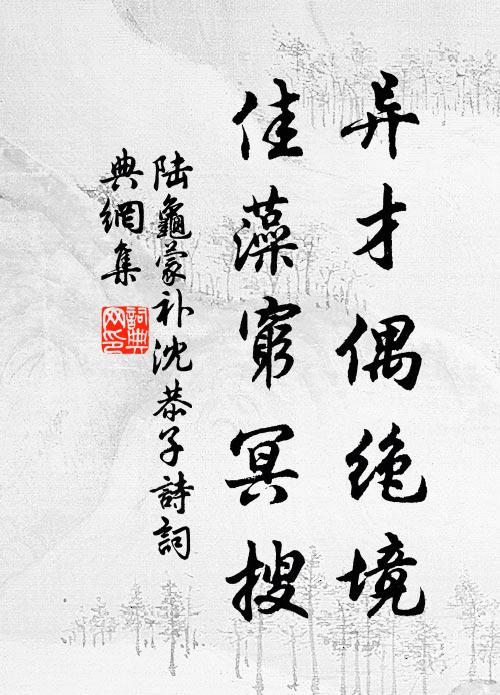 异才偶绝境
佳藻窮冥搜
陆龜蒙补沈恭子詩詞
典網集
詞典
网印